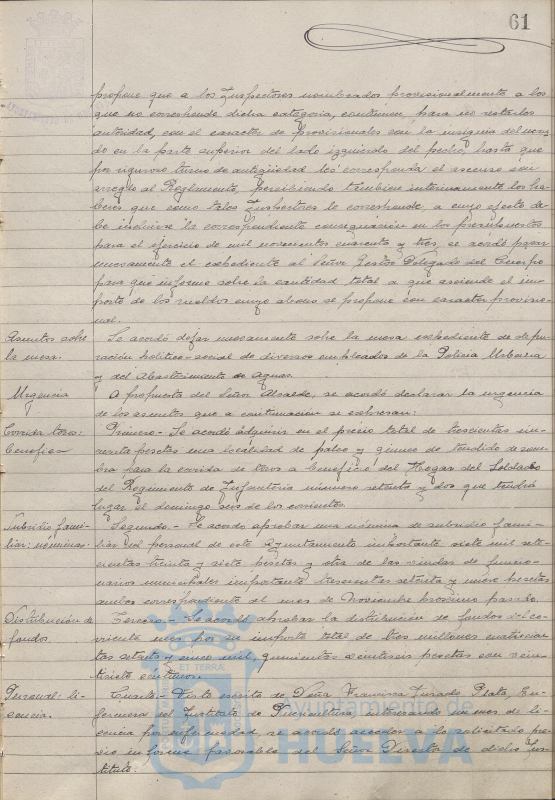 61
propone que a los Inspectores nombrados provisionalmente a los
que no corresponde dicha categoría, continúen, para no restarles
autoridad, con el caracter de provisionales con la insignia del
do en la parte superior del lado izquierdo del pecho, hasta que
por riguroso turno de antigüedad les corresponda el ascenso con
arreglo al Reglamento, percibiendo tambien interinamente los ha-
beres que como tales Inspectores le corresponde, a cuyo efecto de-
be incluirse la correspondiente consignación en los presupuestos
para el ejercicio de mil novecientos cuarenta y tres, se acordó pasar
nuevamente el expediente al Señor Gestor Delegado del Cuerpo
para que informe sobre la cantidad total a que asciende el im-
porte de los sueldos cuyo abono se propone con caracter provisio-
nal.
Asuntos sobre
la mesa.
Se acordó dejar nuevamente sobre la mesa expediente de depu-
ración politico-social de diversos empleados de la Policia Urbana
y del Abastecimiento de Aguas.
Urgencia
A propuesta del Señor Alcalde, se acordó declarar la urgencia
de los asuntos que a continuación se expresan:
Corrida toros:
Benefica
Primero.- Se acordó adquirir en el precio total de trescientas cin-
cuenta pesetas una localidad de palco y quince de tendido de som-
bra para la corrida de toros a beneficio del Hogar del Soldado
del Regimiento de Infantería número setenta y dos que tendrá
lugar el domingo seis de los corrientes.
Subsidio fami-
liar: nóminas.
Segundo.- Se acordo aprobar una nómina de subsidio fami-
liar del personal de este Ayuntamiento importante siete mil sete-
cientas treinta y siete pesetas y otra de las viudas de funcio-
narios municipales importante trescientas setenta y nueve pesetas
ambas correspondiente al mes de Noviembre proximo pasado.
Distribución de
fondos.
Tercero.- Se acordó aprobar la distribución de fondos del co-
rriente mes por un importe total de tres millones cuatrocien-
tas setenta y cinco mil, quinientas veintiseis pesetas con vein-
tisiete centimos.
Personal: li-
cencia.
Cuarto.- Visto escrito de Doña Francisca Jurado Plata, En-
fermera del Instituto de Puericultura interesando un mes de li-
cencia por enfermedad, se acordó acceder a lo solicitado pre-
vio informe favorable del Señor Director de dicho Ins-
tituto.
ET TERRA
Ayuntamiento de
HUELVA